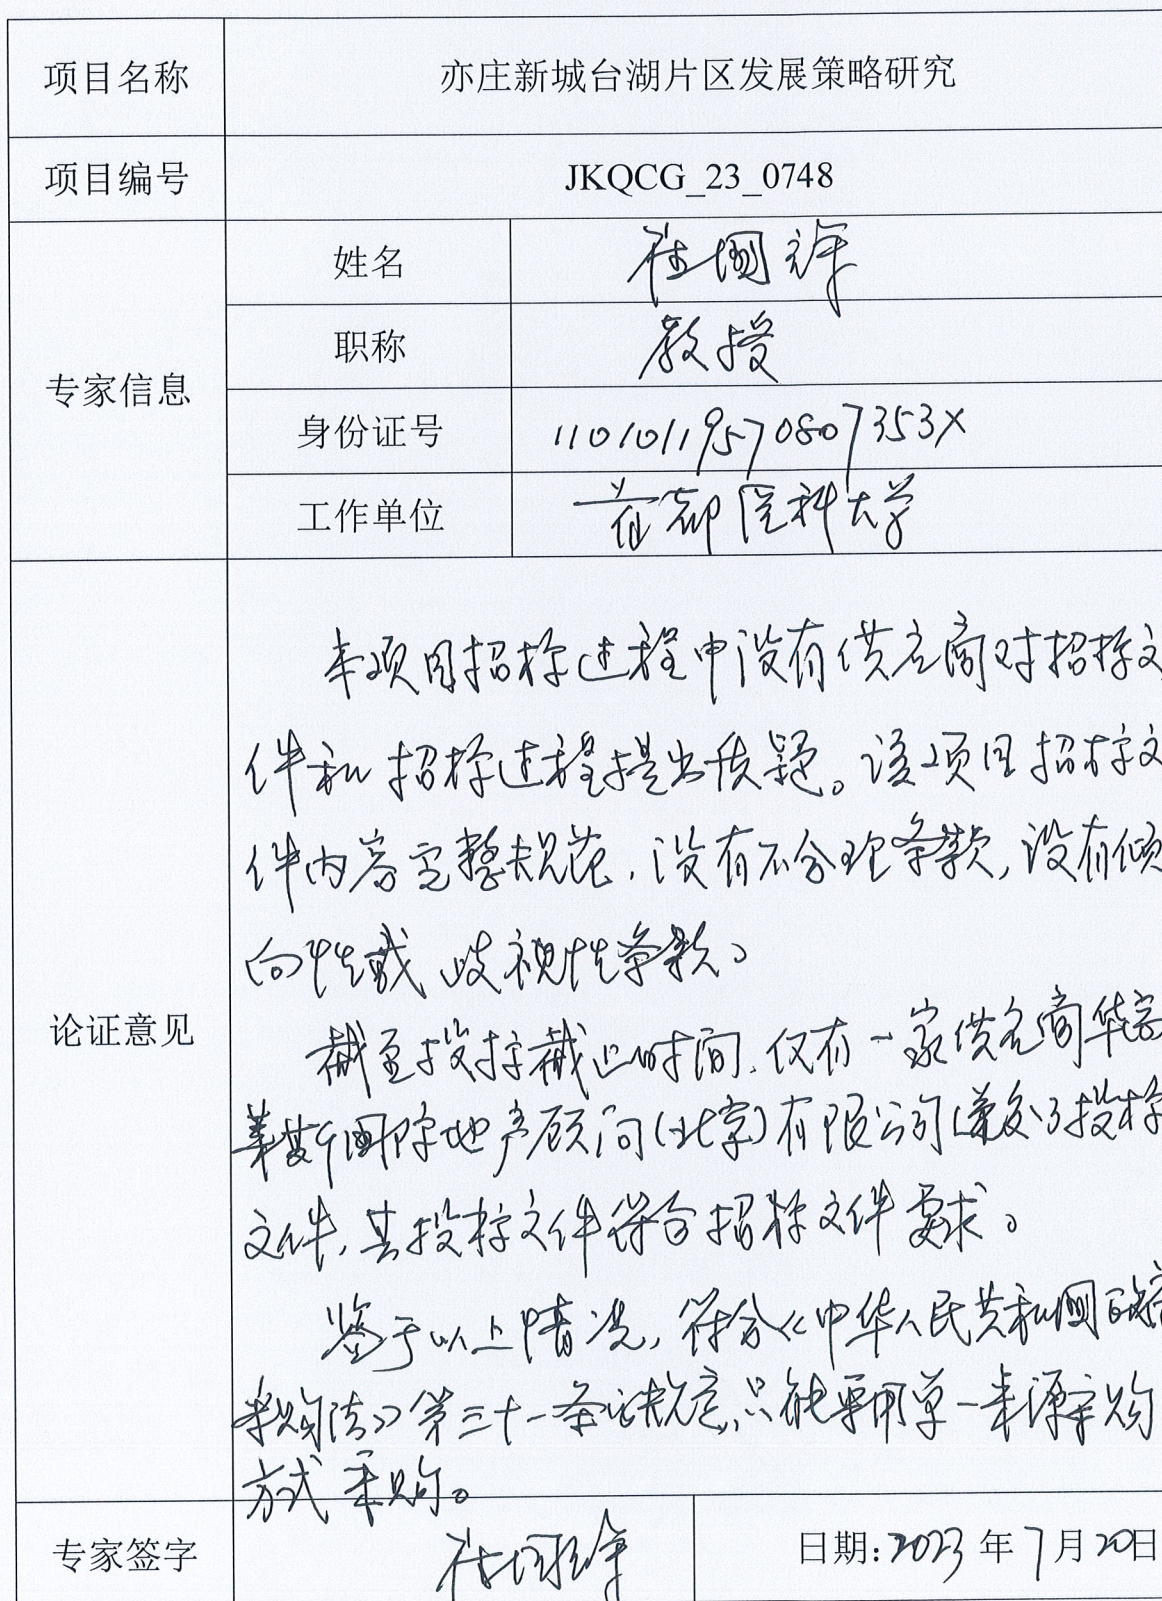 项目名称 亦庄新城台湖片区发展策略研究
项目编号 JKQCG_23_0748
专家信息
姓名
职称 教授
身份证号 11010119570807353X
工作单位 首都医科大学
论证意见
本项目招标过程中没有供应商对招标文
件和招标过程提出质疑。该项目招标文
件内容完整规范,没有不合理条款,没有倾
向性或歧视性条款。
截至投标截止时间,仅有一家供应商华高
莱斯国际地产顾问(北京)有限公司递交了投标
文件,其投标文件符合招标文件要求。
鉴于以上情况,符合《中华人民共和国政府
采购法》第三十一条之规定,只能采用单一来源采购
方式采购。
专家签字
日期:2023年7月20日